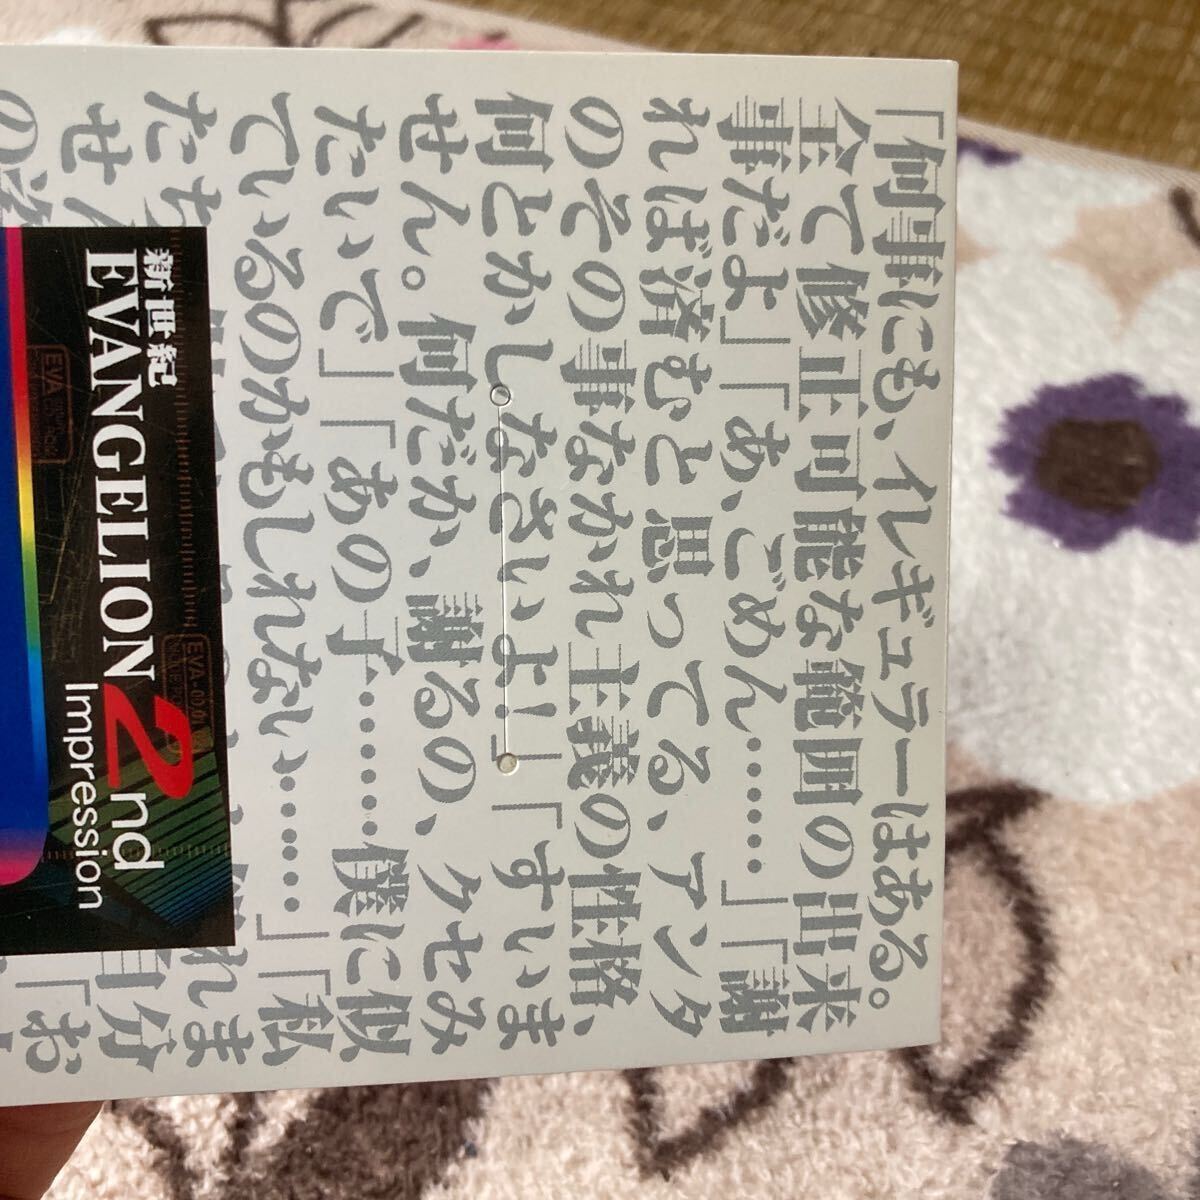 「何事にも、イレギュラーはある。
全て修正可能な範囲の出来
事だよ」「あ、ごめん……」「謝
れば済むと思ってる、アンタ
のその事なかれ主義の性格、
何とかしなさいよ!」「すいま
せん。何だか、謝るの、クセみ
たいで」「あの子……僕に似
ているのかもしれない……」「私
たち
れま
せ
自分
の
「お
新世紀
EVANGELION
2nd
Impression
EVA
EVA-00